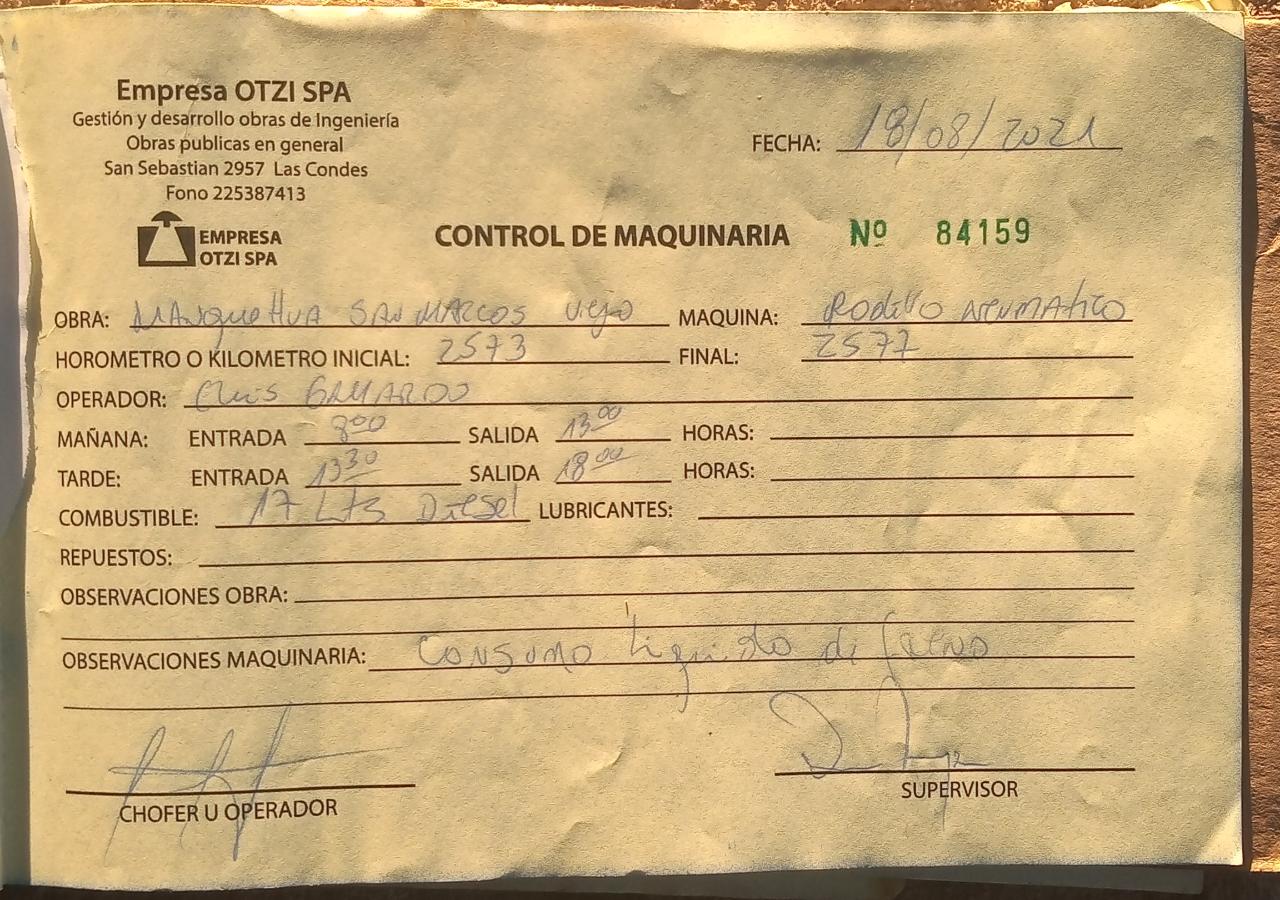 Empresa OTZI SPA
Gestión y desarrollo obras de Ingeniería
Obras publicas en general
San Sebastian 2957 Las Condes
Fono 225387413
EMPRESA
OTZI SPA
FECHA: 18/08/2021
CONTROL DE MAQUINARIA Nº 84159
OBRA: SAN MARCOS Viejo MAQUINA: Rodillo NEUMATICO
HOROMETRO O KILOMETRO INICIAL: 2573 FINAL: 2577
OPERADOR: GALLARDO
MAÑANA: ENTRADA 800 SALIDA 1300 HORAS:
TARDE: ENTRADA 1330 SALIDA 1800 HORAS:
COMBUSTIBLE: 17 Lts Diesel LUBRICANTES:
REPUESTOS:
OBSERVACIONES OBRA:
OBSERVACIONES MAQUINARIA: CONSUMO liquido de freno
CHOFER U OPERADOR
SUPERVISOR